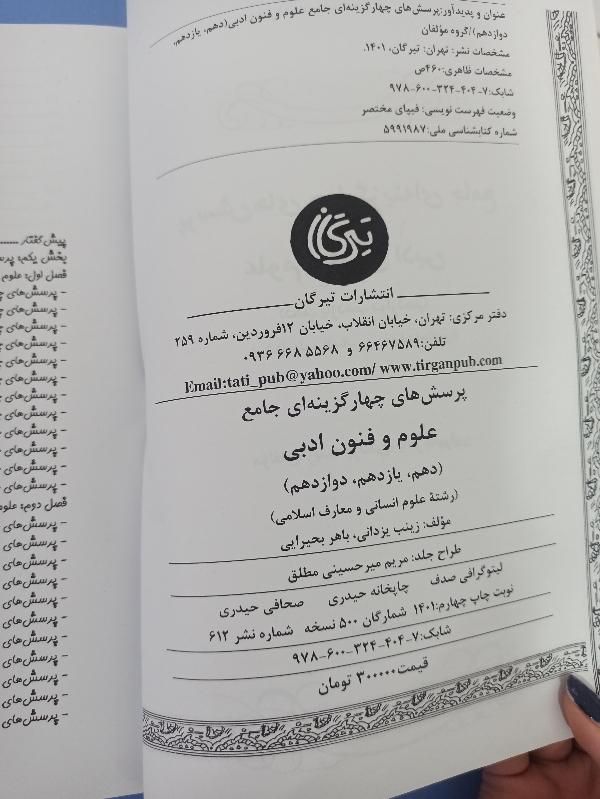 عنوان و پدیدآور:پرسش‌های چهارگزینه‌ای جامع علوم و فنون ادبی(دهم، یازدهم،
دوازدهم)/گروه مؤلفان
مشخصات نشر: تهران: تیرگان، ۱۴۰۱.
مشخصات ظاهری:۴۶۰ص
شابک:۷-۴۰۴-۳۲۴-۶۰۰-۹۷۸
وضعیت فهرست نویسی: فیپای مختصر
شماره کتابشناسی ملی:۵۹۹۱۹۸۷
تیرگان
انتشارات تیرگان
دفتر مرکزی: تهران، خیابان انقلاب، خیابان ۱۲فروردین، شماره ۲۵۹
تلفن:۶۶۴۶۷۵۸۹ و ۰۹۳۶ ۶۶۸ ۵۵۶۸
Email:tati_pub@yahoo.com/ www.tirganpub.com
پرسش‌های چهارگزینه‌ای جامع
علوم و فنون ادبی
(دهم، یازدهم، دوازدهم)
(رشتهٔ علوم انسانی و معارف اسلامی)
مؤلف: زینب یزدانی، باهر بحیرایی
طراح جلد: مریم میرحسینی مطلق
لیتوگرافی صدف چاپخانه حیدری صحافی حیدری
نوبت چاپ چهارم:۱۴۰۱ شمارگان ۵۰۰ نسخه شماره نشر ۶۱۲
شابک:۷-۴۰۴-۳۲۴-۶۰۰-۹۷۸
قیمت ۳۰۰۰۰۰ تومان
پیش‌گفتار
بخش یکم: پرس
فصل اول: علوم
- پرسش‌های چ
- پرسش‌های چ
- پرسش‌های چ
- پرسش‌های چ
- پرسش‌های چ
- پرسش‌های چ
- پرسش‌های چ
- پرسش‌های چ
- پرسش‌های چ
- پرسش‌های چ
- پرسش‌های چ
فصل دوم: علوم
- پرسش‌های
- پرسش‌های
- پرسش‌های
- پرسش‌های
- پرسش‌های
- پرسش‌های
- پرسش‌های
- پرسش‌های
- پرسش‌های
- پرسش‌های
- پرسش‌های